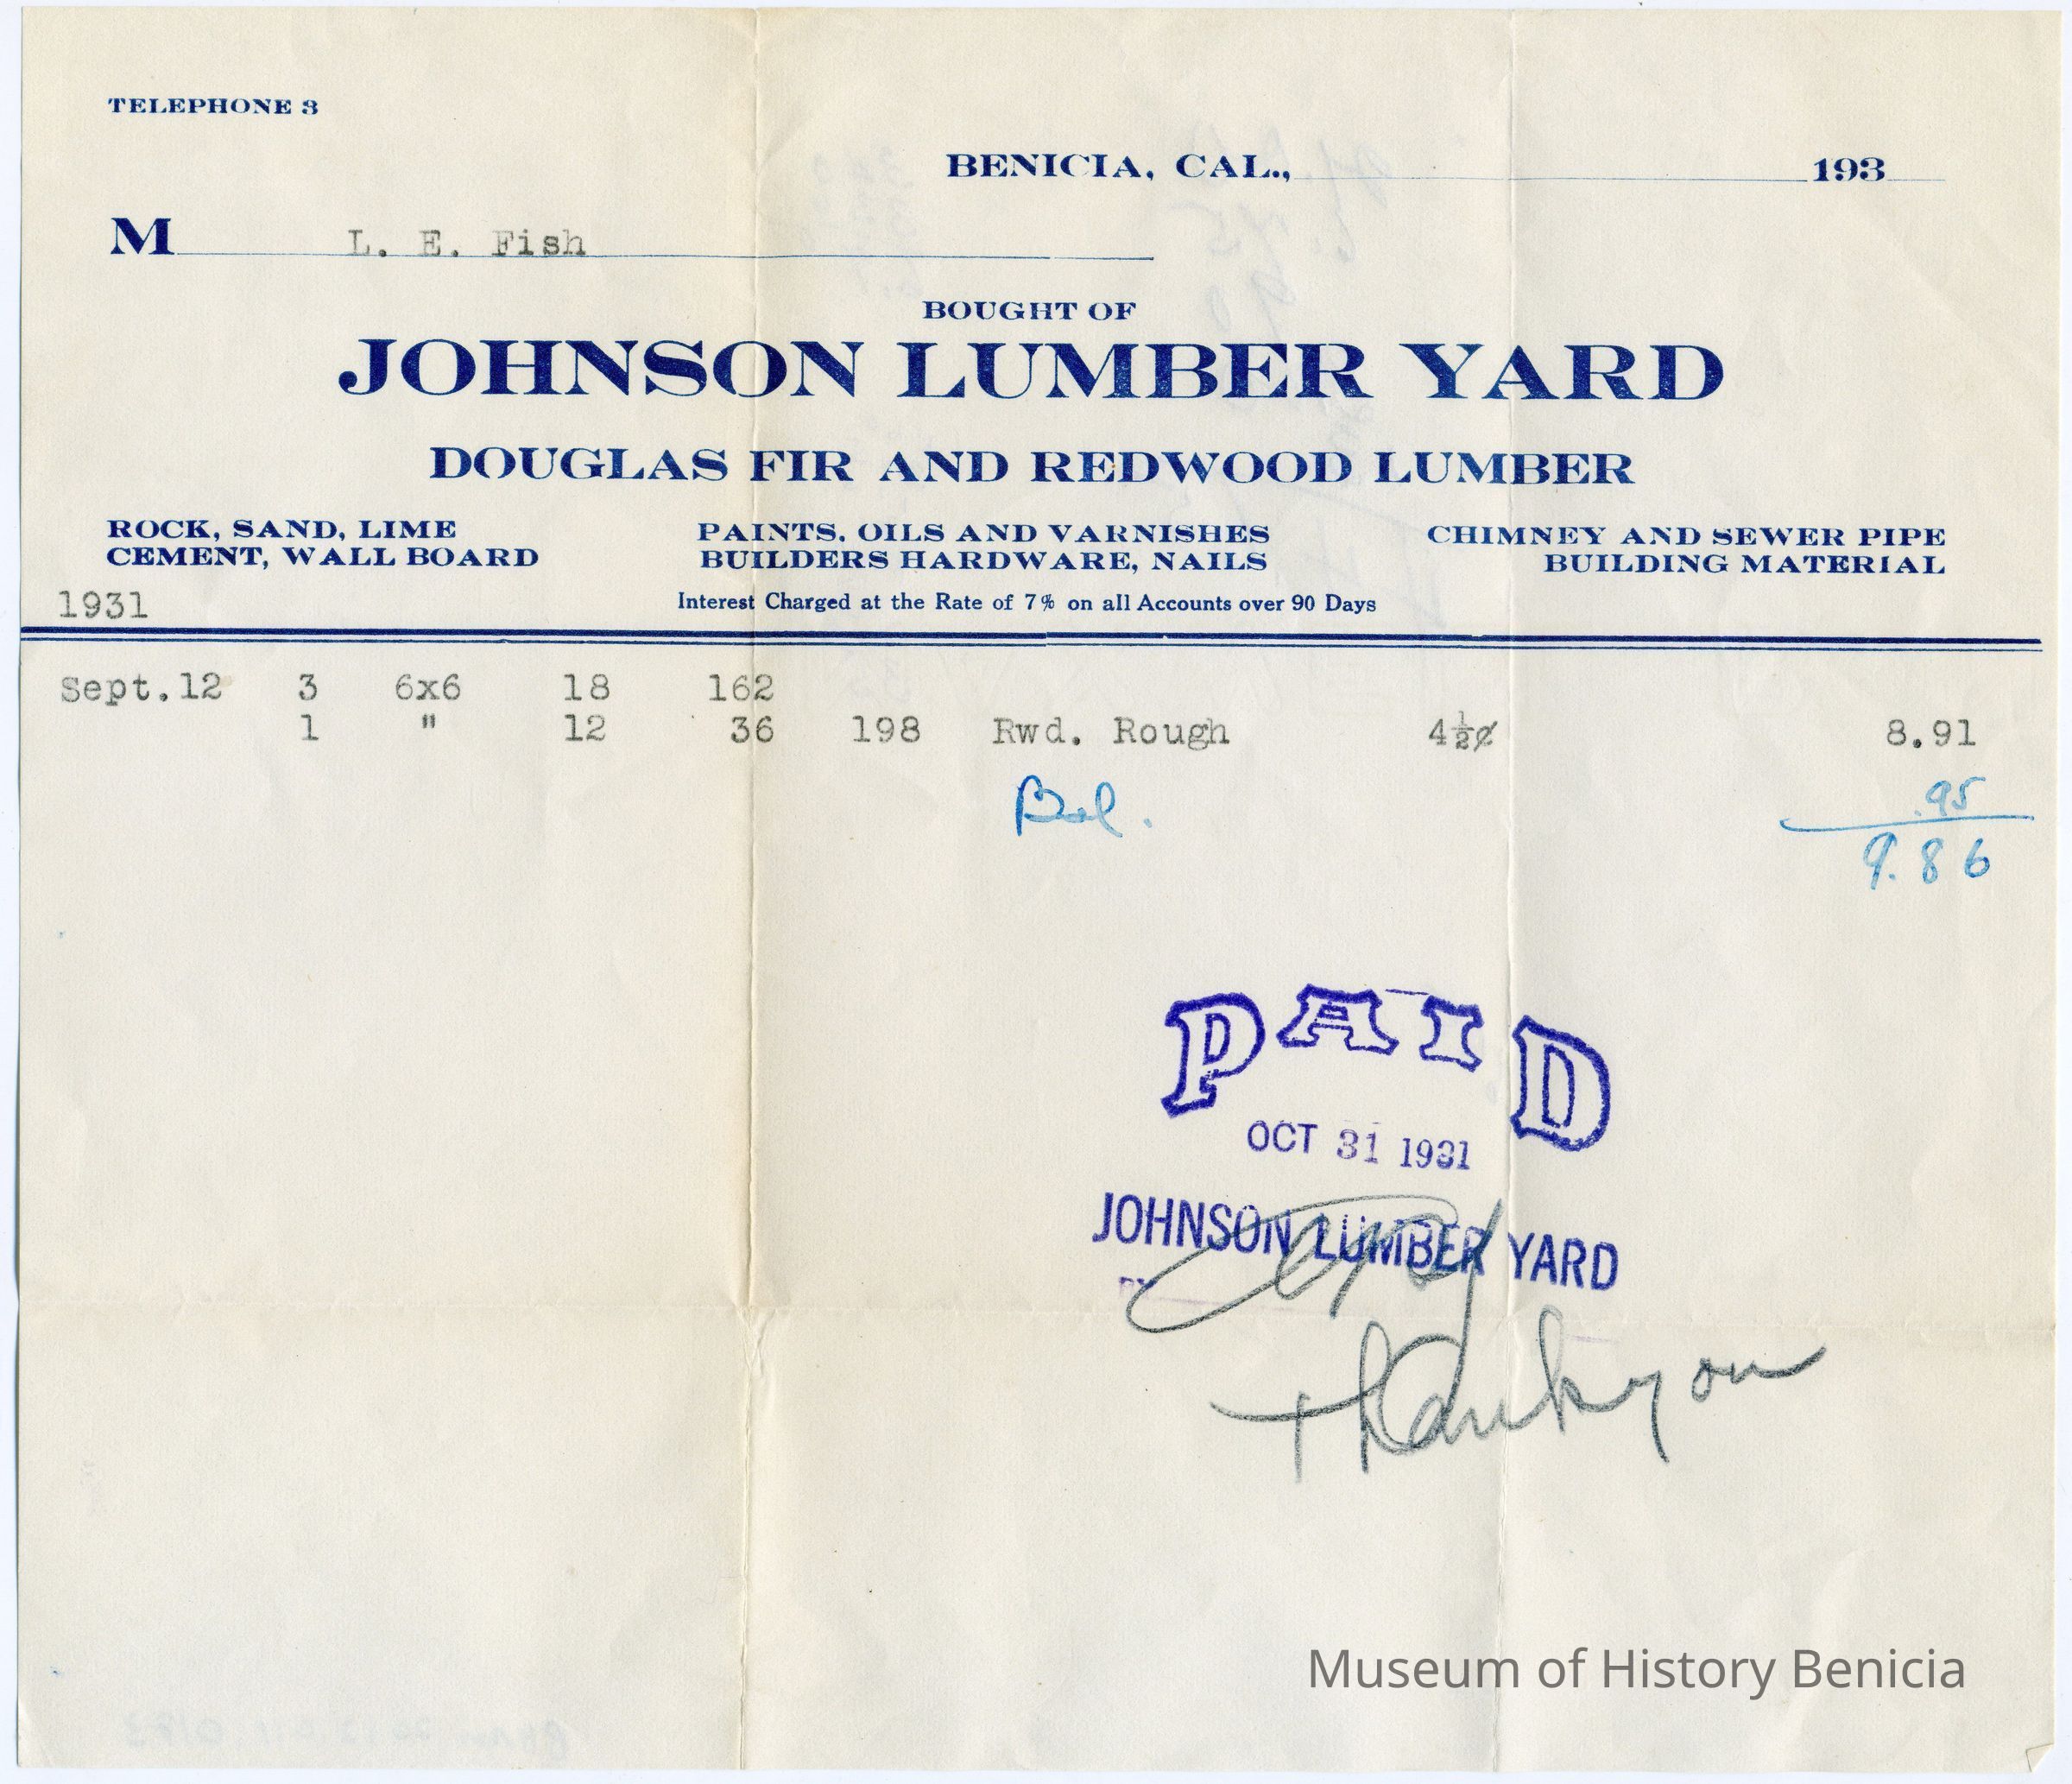 TELEPHONE 3
BENICIA, CAL., 193
M L. E. Fish
BOUGHT OF
JOHNSON LUMBER YARD
DOUGLAS FIR AND REDWOOD LUMBER
ROCK, SAND, LIME
CEMENT, WALL BOARD
PAINTS, OILS AND VARNISHES
BUILDERS HARDWARE, NAILS
CHIMNEY AND SEWER PIPE
BUILDING MATERIAL
1931
Interest Charged at the Rate of 7% on all Accounts over 90 Days
Sept.12 3 6x6 18 162
1 " 12 36 198 Rwd. Rough 4½¢ 8.91
Bal. .95
9.86
PAID
OCT 31 1931
JOHNSON LUMBER YARD
BY
Thank you
Museum of History Benicia